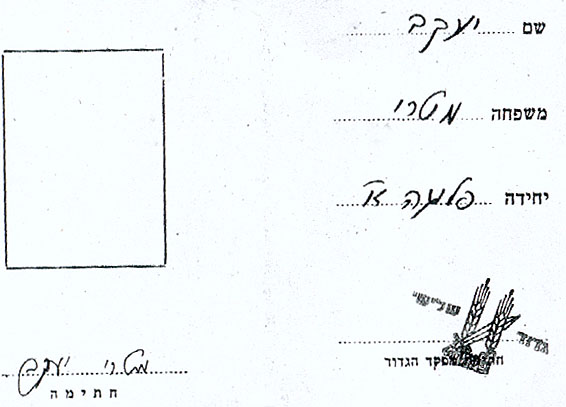 שם יעקב
משפחה מטרי
יחידה פלוגה א'
גדוד
חתימת מפקד הגדוד
מטרי יעקב
חתימה